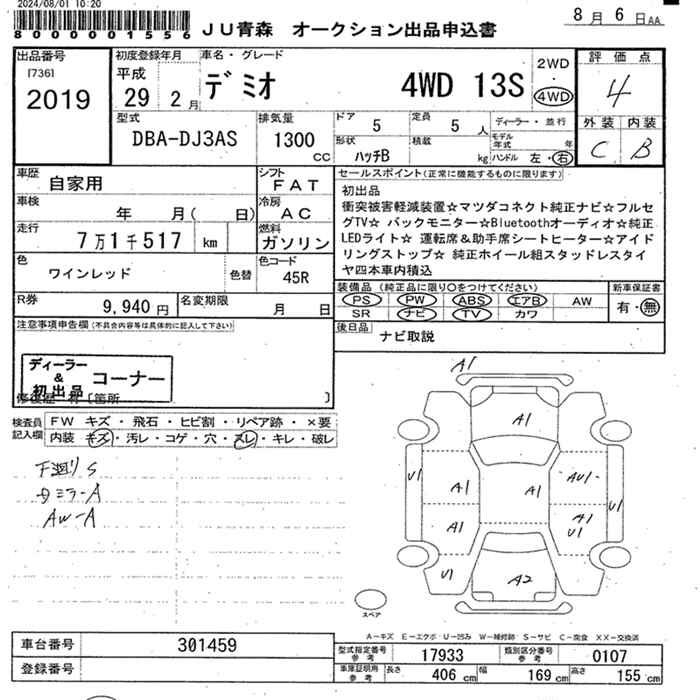 2024/08/01 10:20
8000001556
JU青森 オークション出品申込書
8月6日AA
出品番号
[736]
2019
初度登録年月
平成
29年2月
車名・グレード
デミオ 4WD 13S
2WD
・
4WD
評価点
4
外装 内装
C B
型式
DBA-DJ3AS
排気量
1300
CC
ドア
5
定員
5人
形状
ハッチB
積載
kg
ディーラー・並行
モデル年式 年
ハンドル 左・右
車歴
自家用
シフト
FAT
車検
年 月( 日)
冷房
AC
走行
7万1千517 km
燃料
ガソリン
色
ワインレッド
色替
色コード
45R
R券
9,940円
名変期限
月 日
セールスポイント(正常に機能するものに限ります)
初出品
衝突被害軽減装置☆マツダコネクト純正ナビ☆フルセ
グTV☆ バックモニター☆Bluetoothオーディオ☆純正
LEDライト☆ 運転席&助手席シートヒーター☆アイド
リングストップ☆ 純正ホイール組スタッドレスタイ
ヤ四本車内積込
装備品(純正品に限り○をつけてください)
新車保証書
PS PW ABS エアB AW
有・無
SR ナビ TV カワ
後日品
ナビ取説
注意事項申告欄(不具合内容等は具体的に記入して下さい)
ディーラー
&
初出品
コーナー
修復歴 有〔箇所 〕
検査員
記入欄
FW キズ・飛石・ヒビ割・リペア跡・×要
内装 キズ・汚レ・コゲ・穴・スレ・キレ・破レ
下廻りS
カミラーA
AW-A
A1
A1
U1
A1
A1
AU1
U1
A1
A1
U1
U1
A2
スペア
A-キズ E-エクボ U-凹み W-補修跡 S-サビ C-腐食 XX-交換済
車台番号
301459
登録番号
型式指定番号
参考
17933
類別区分番号
参考
0107
車庫証明用
参考
長さ
406cm
幅
169cm
高さ
155cm